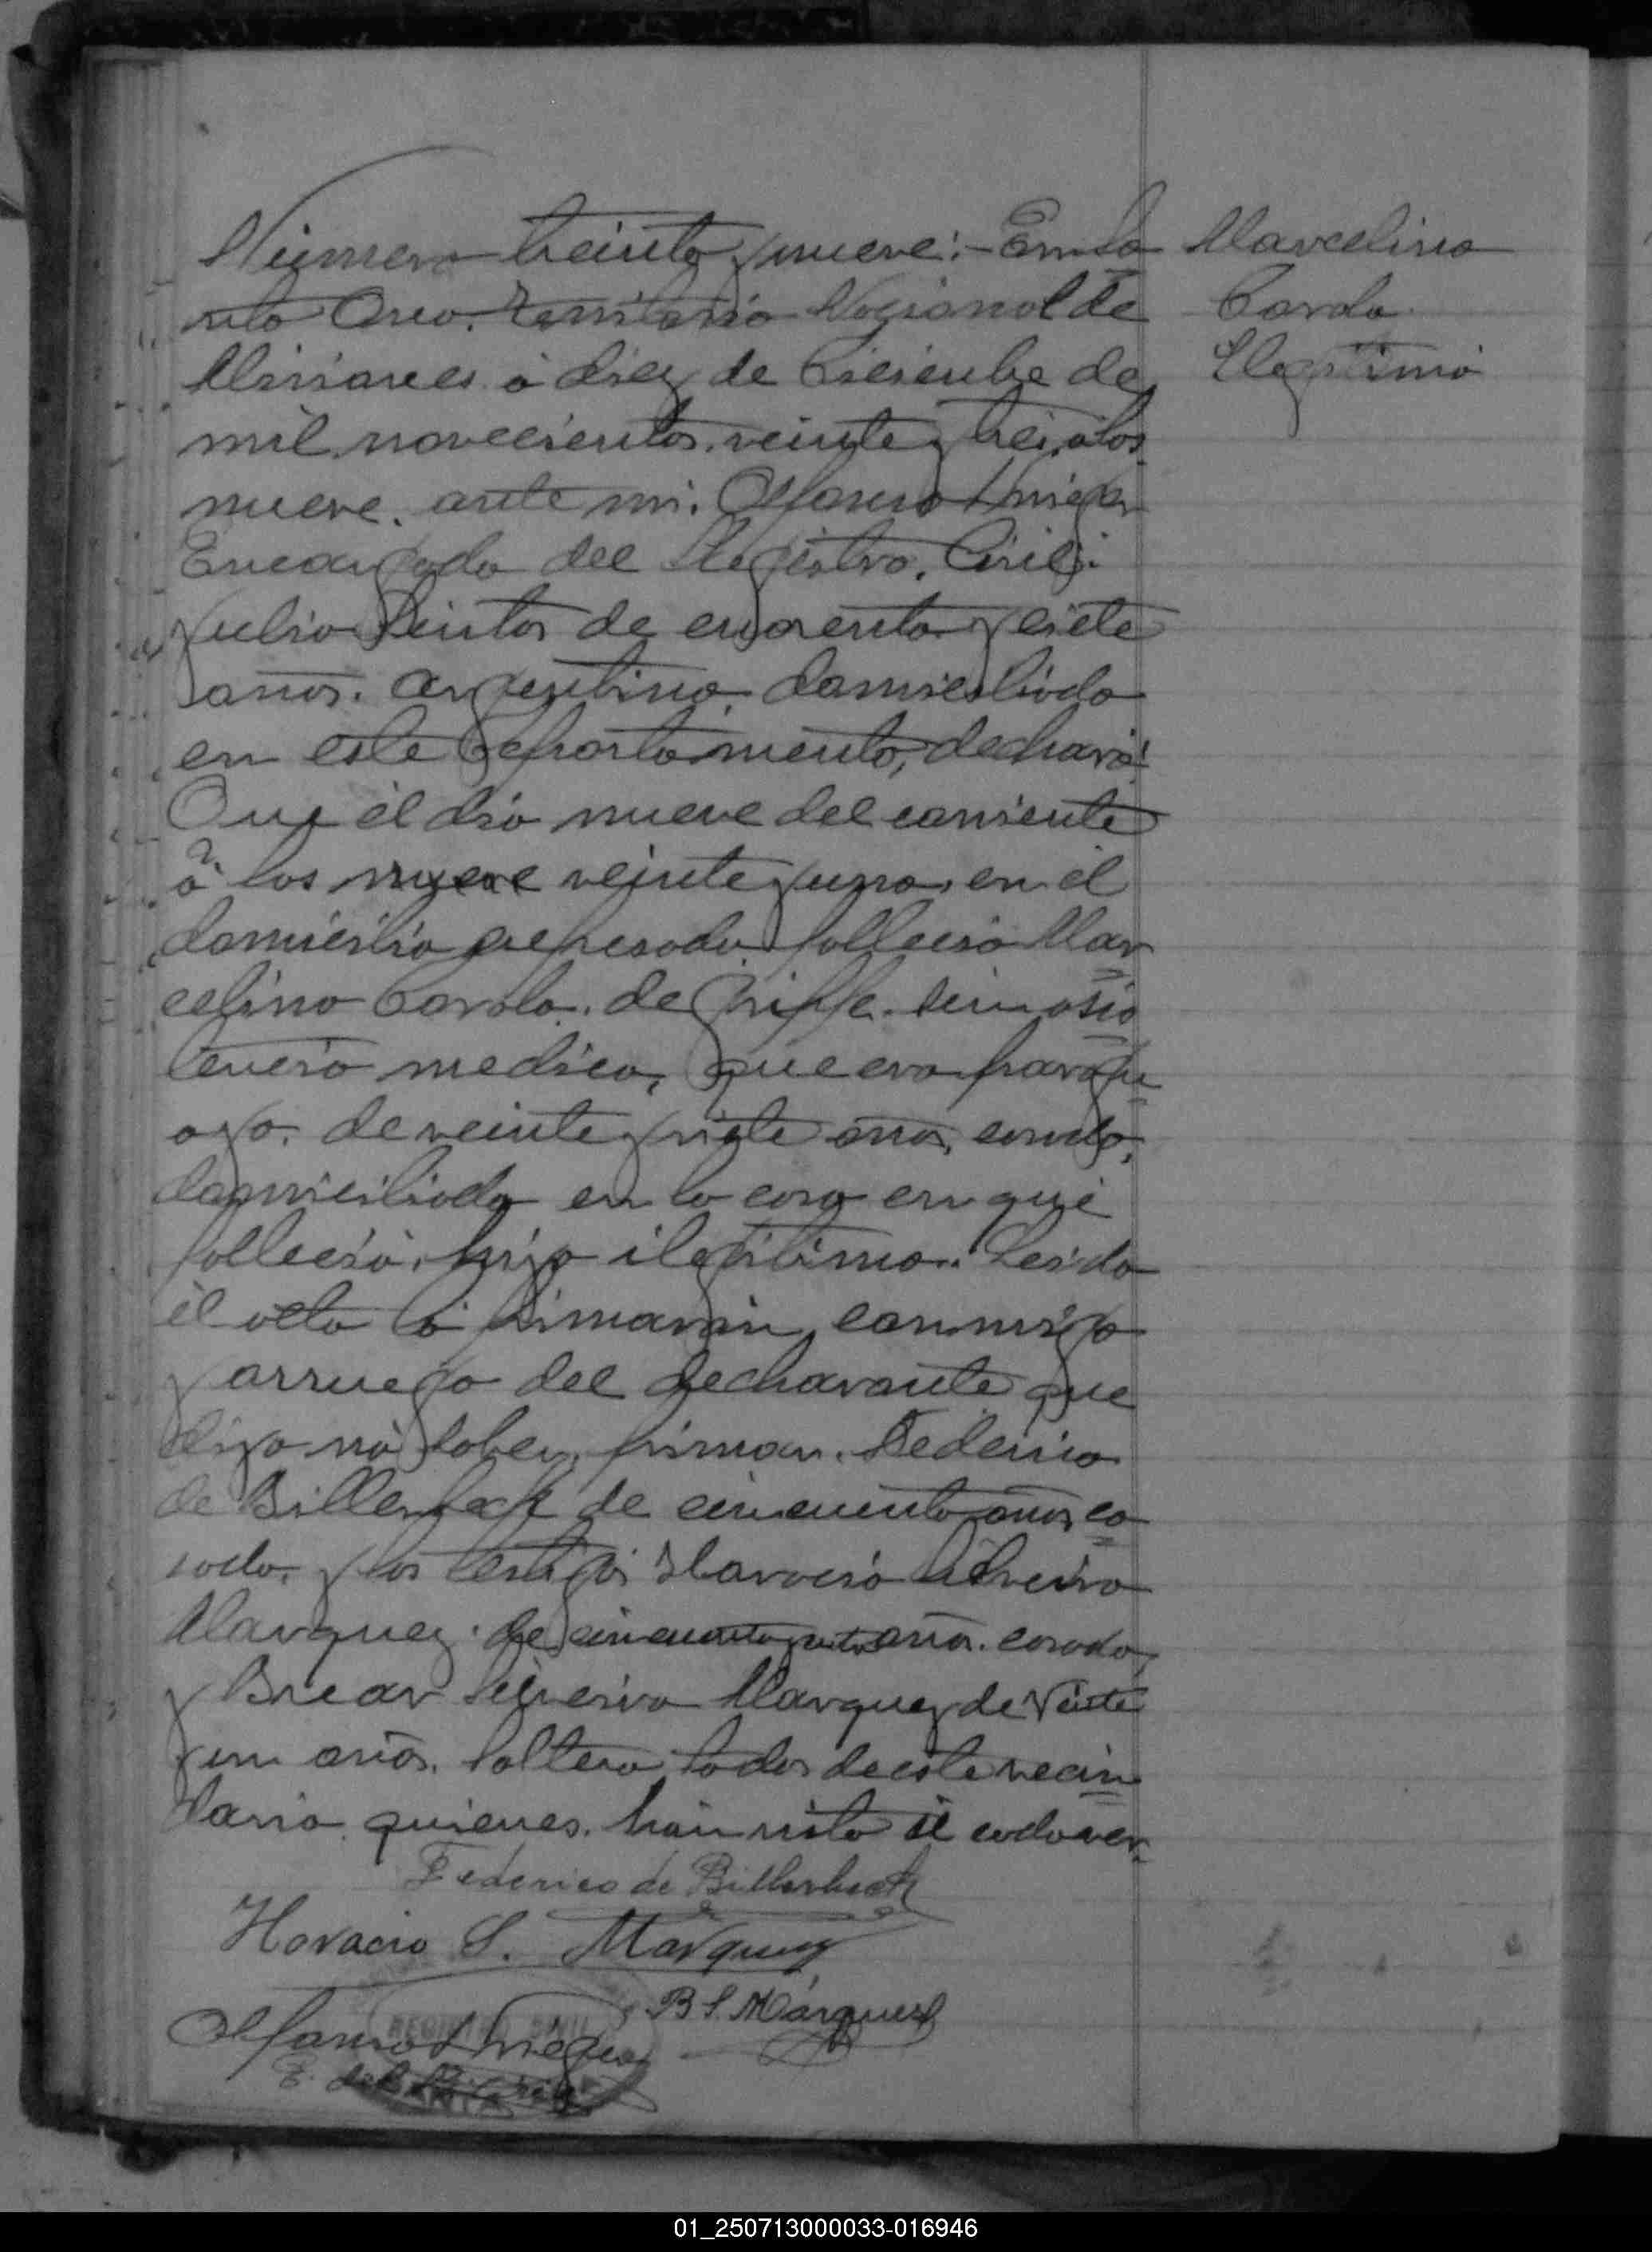 Número treinta y nueve:- En Sa
nta Ana. Territorio Nacional de
Misiones á diez de Diciembre de
mil novecientos veinte y tres, á las
nueve. ante mi. Alfonso
Encargado del Registro. Civil:
Julio de cuarenta y siete
años. argentino, domiciliado
en este Departamento, declaró:
Que él dia nueve del corriente
á las nueve veinte y una, en el
domicilio falleció Mar
celino de Griffe. sin asis
tencia medica, que era paragu
ayo. de veinte y siete años, casado,
domiciliado en la casa en qué
falleció, hijo ilegitimo. Leida
él acta lá firmarán conmigo
y arruego del declarante que
dijo nó saber, firmar. Federico
de Billerbeck de cincuenta años, ca
sado, y los testigos Horacio Silveira
Marquez de cincuenta y años. casado,
y Silveira Marquez de Veinte
y un años. soltero, todos de este vecin
dario quienes. hán visto él cadaver.
Federico de Billerbeck
Horacio S. Marquez
B S. Márquez
Alfonso
E. del R. Civil
REGISTRO CIVIL
Marcelino
Ilegítimo
01_250713000033-016946